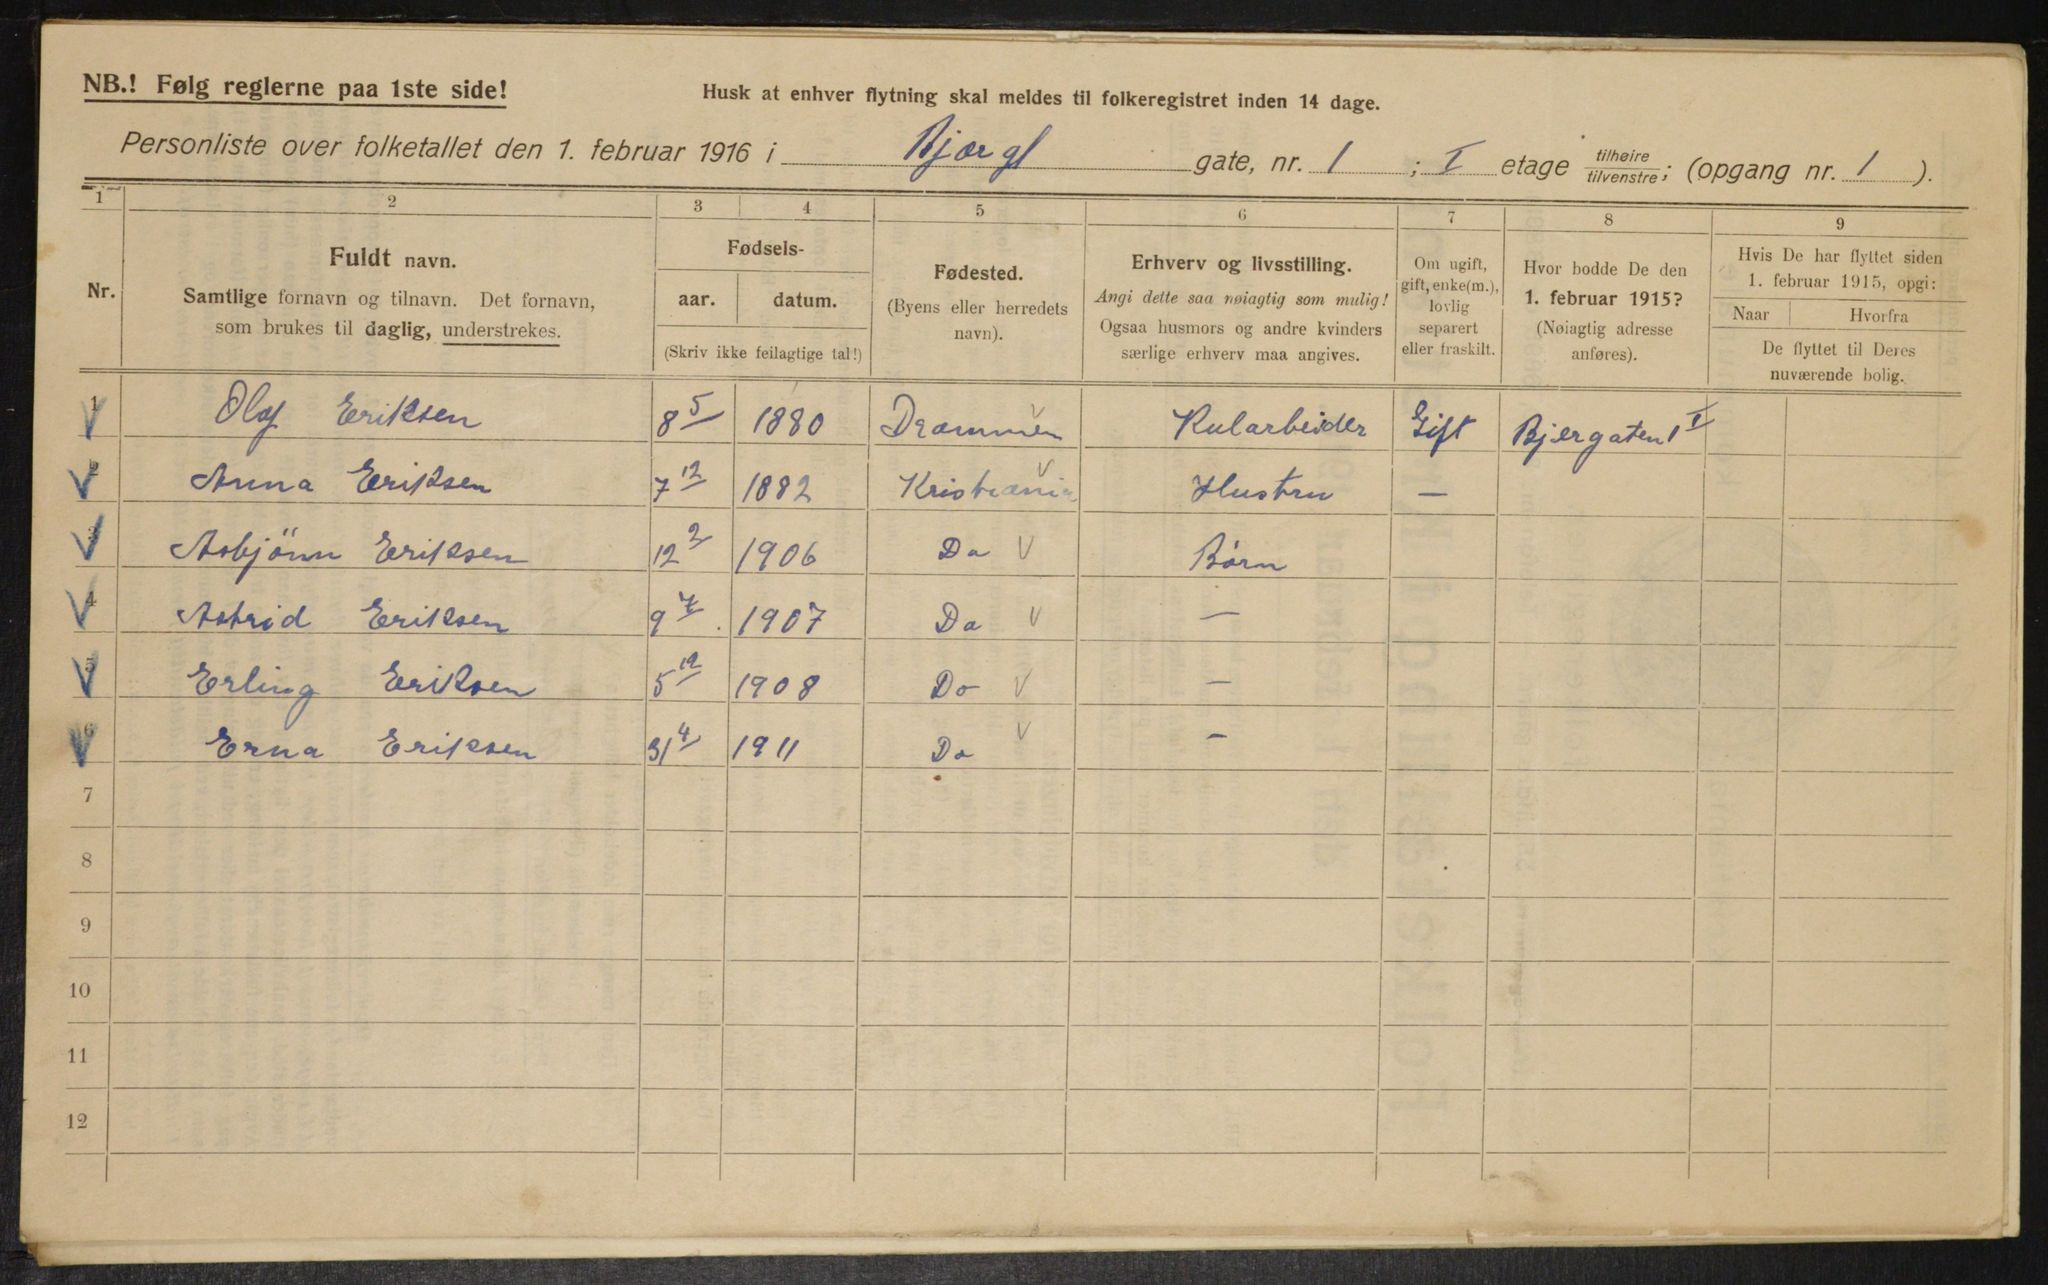 NB.! Følg reglerne paa 1ste side!
Husk at enhver flytning skal meldes til folkeregistret inden 14 dage.
Personliste over folketallet den 1. februar 1916 i Bjærg gate, nr. 1 ; I etage tilhøire/tilvenstre; (opgang nr. 1 ).
1 2 3 4 5 6 7 8 9
Nr.
Fuldt navn.
Samtlige fornavn og tilnavn. Det fornavn,
som brukes til daglig, understrekes.
Fødsels-
aar. datum.
(Skriv ikke feilagtige tal!)
Fødested.
(Byens eller herredets
navn).
Erhverv og livsstilling.
Angi dette saa nøiagtig som mulig!
Ogsaa husmors og andre kvinders
særlige erhverv maa angives.
Om ugift,
gift, enke(m.),
lovlig
separert
eller fraskilt.
Hvor bodde De den
1. februar 1915?
(Nøiagtig adresse
anføres).
Hvis De har flyttet siden
1. februar 1915, opgi:
Naar Hvorfra
De flyttet til Deres
nuværende bolig.
1 Olaf Eriksen 8 5 1880 Drammen Kularbeider Gift Bjergaten 1 I
2 Anna Eriksen 7 12 1882 Kristiania Hustru —
3 Asbjönn Eriksen 12 2 1906 Do Börn
4 Astrid Eriksen 9 7 1907 Do —
5 Erling Eriksen 5 12 1908 Do —
6 Erna Eriksen 31 4 1911 Do —
7
8
9
10
11
12